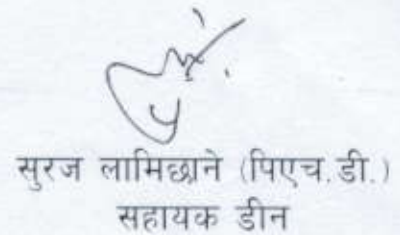 सुरज लामिछाने (पिएच.डी.)
सहायक डीन